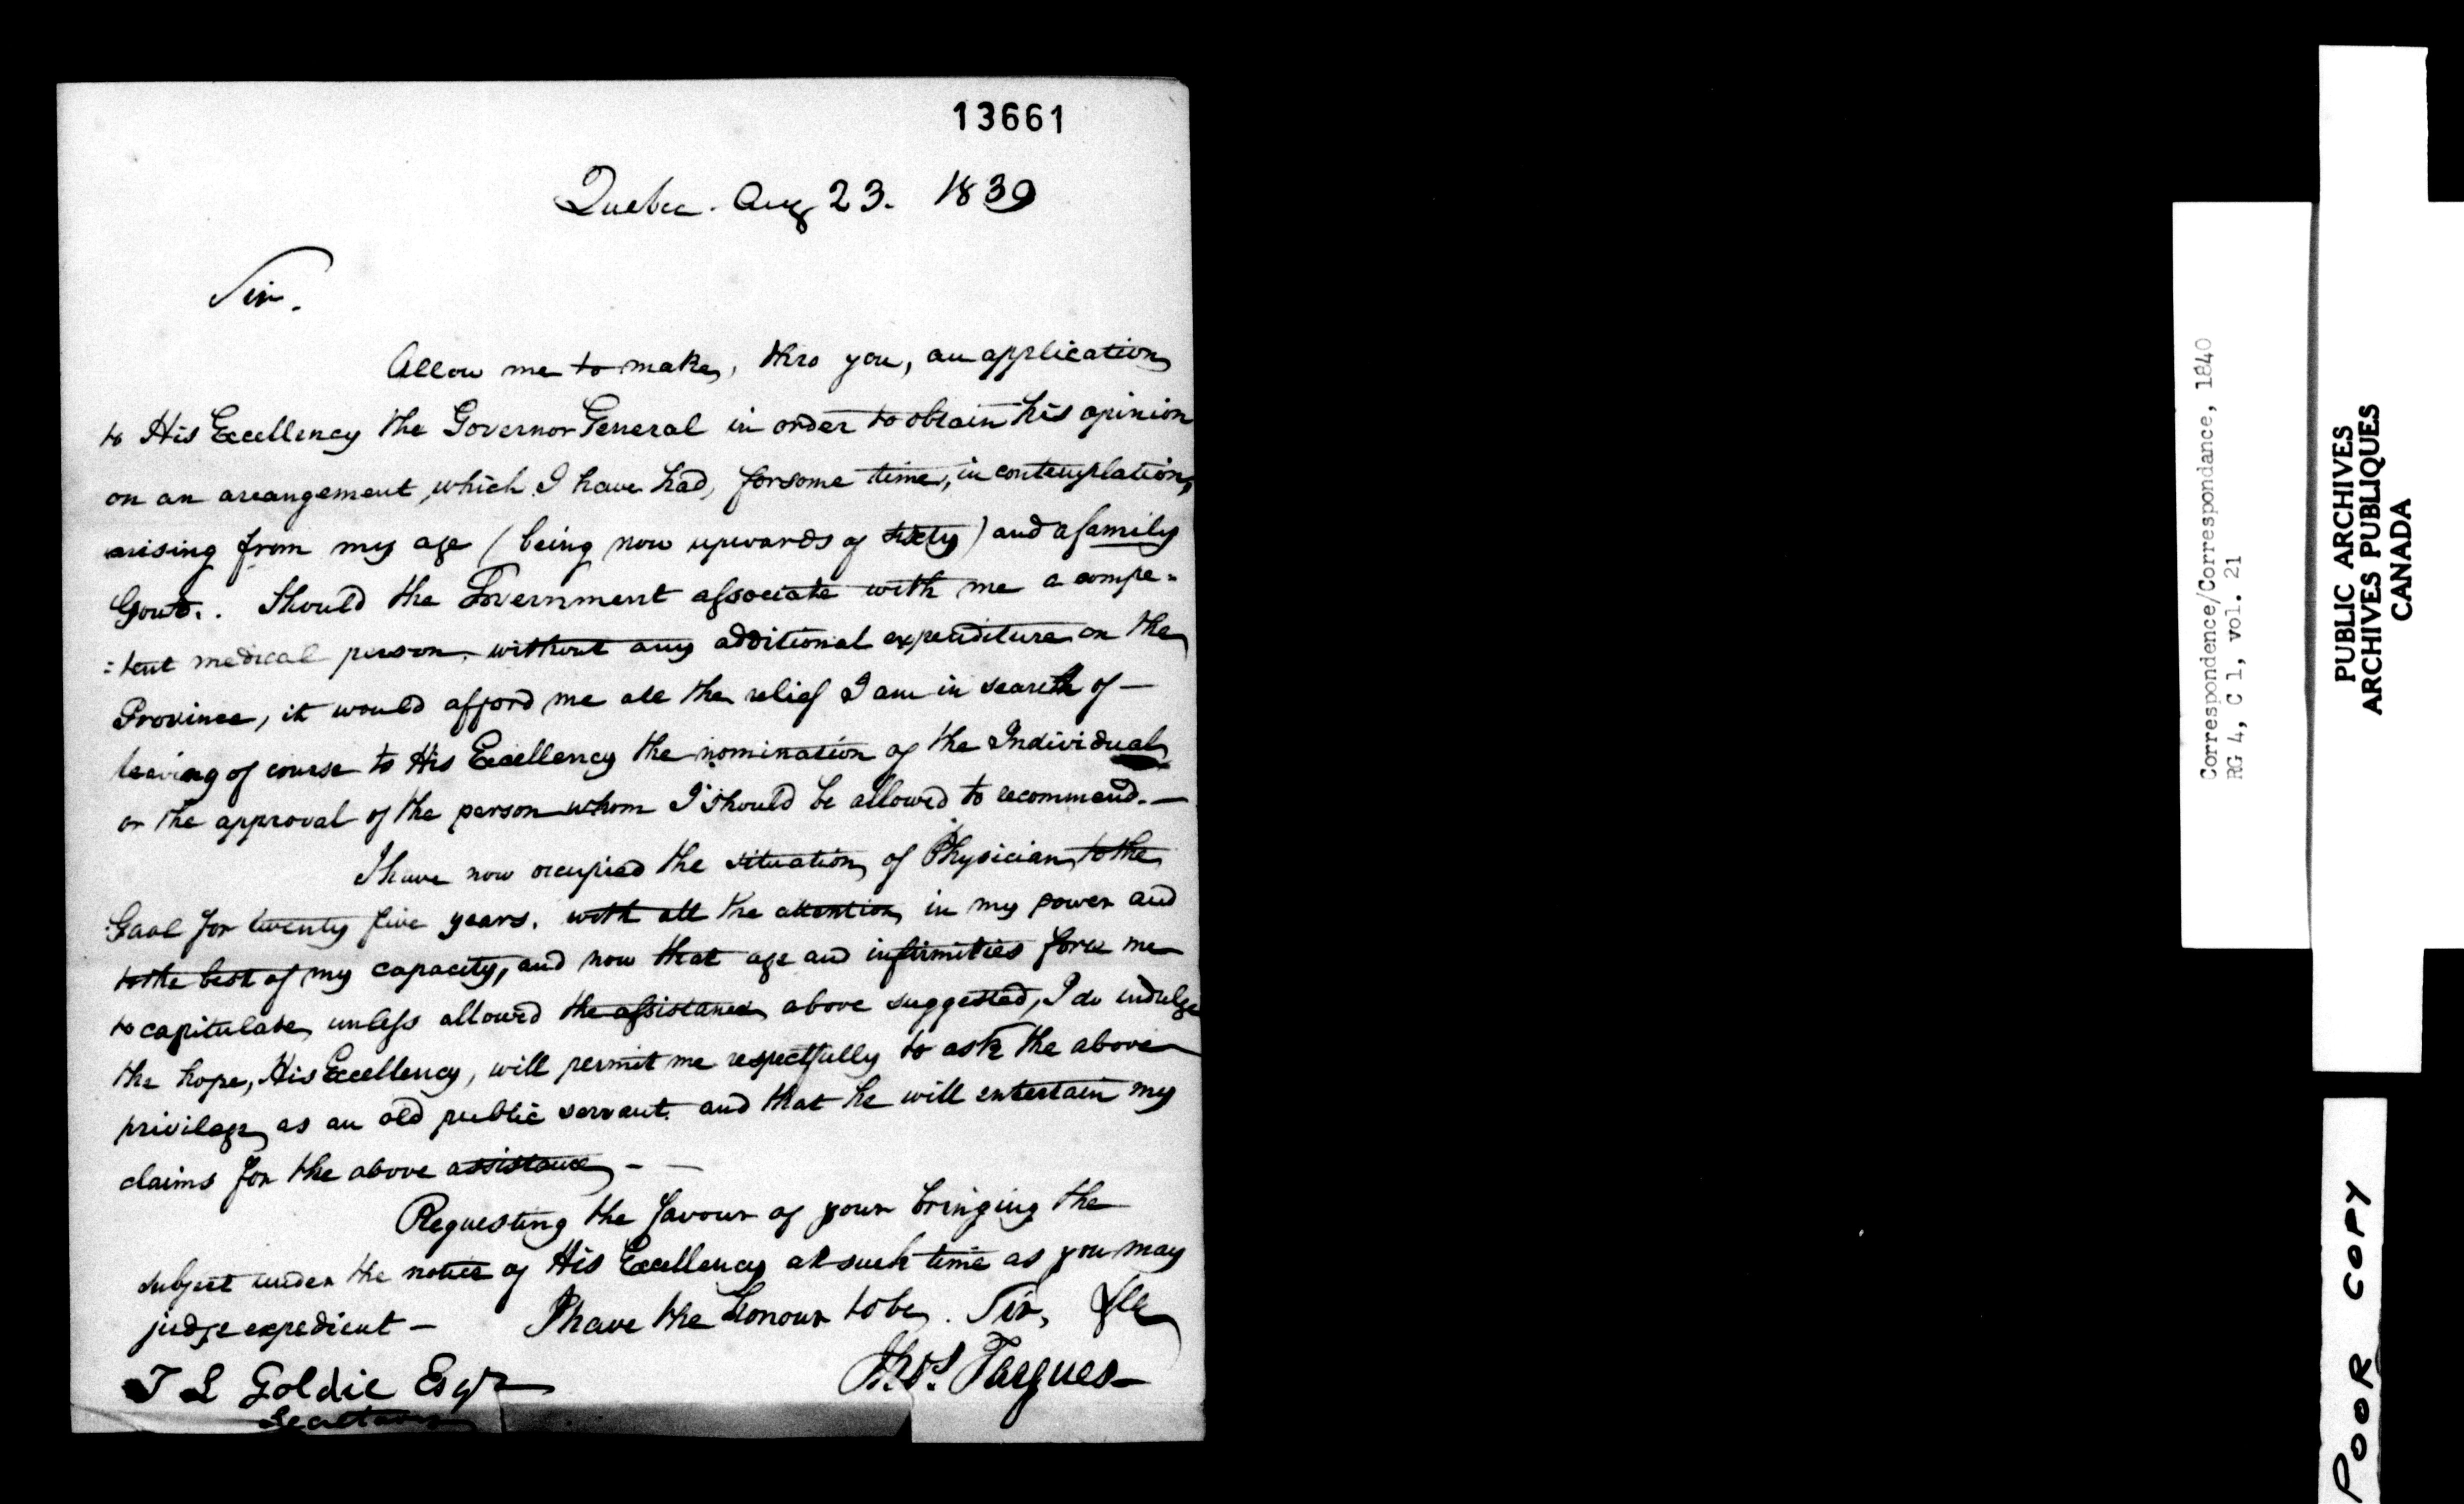 13661
Quebec. Aug 23. 1839
Sir.
Allow me to make, thro you, an application
to His Excellency the Governor General in order to obtain his opinion
on an arrangement, which I have had, for some time, in contemplation,
arising from my age (being now upwards of sixty) and a family
Gout.. Should the Government associate with me a compe=
=tent medical person, without any additional expenditure on the
Province, it would afford me all the relief I am in search of —
leaving of course to His Excellency the nomination of the Individual
or the approval of the person whom I should be allowed to recommend. —
I have now occupied the situation of Physician to the
Gaol for twenty five years. with all the attention in my power and
to the best of my capacity, and now that age and infirmities force me
to capitulate unless allowed the assistance above suggested, I do indulge
the hope, His Excellency, will permit me respectfully to ask the above
privilege as an old public servant. and that he will entertain my
claims for the above assistance — —
Requesting the favour of your bringing the
subject under the notice of His Excellency at such time as you may
judge expedient — I have the honour to be. Sir, &c
T L Goldie Esqr Thos. Fargues
Secretary
Correspondence/Correspondance, 1840
RG 4, C 1, vol. 21
PUBLIC ARCHIVES
ARCHIVES PUBLIQUES
CANADA
POOR COPY